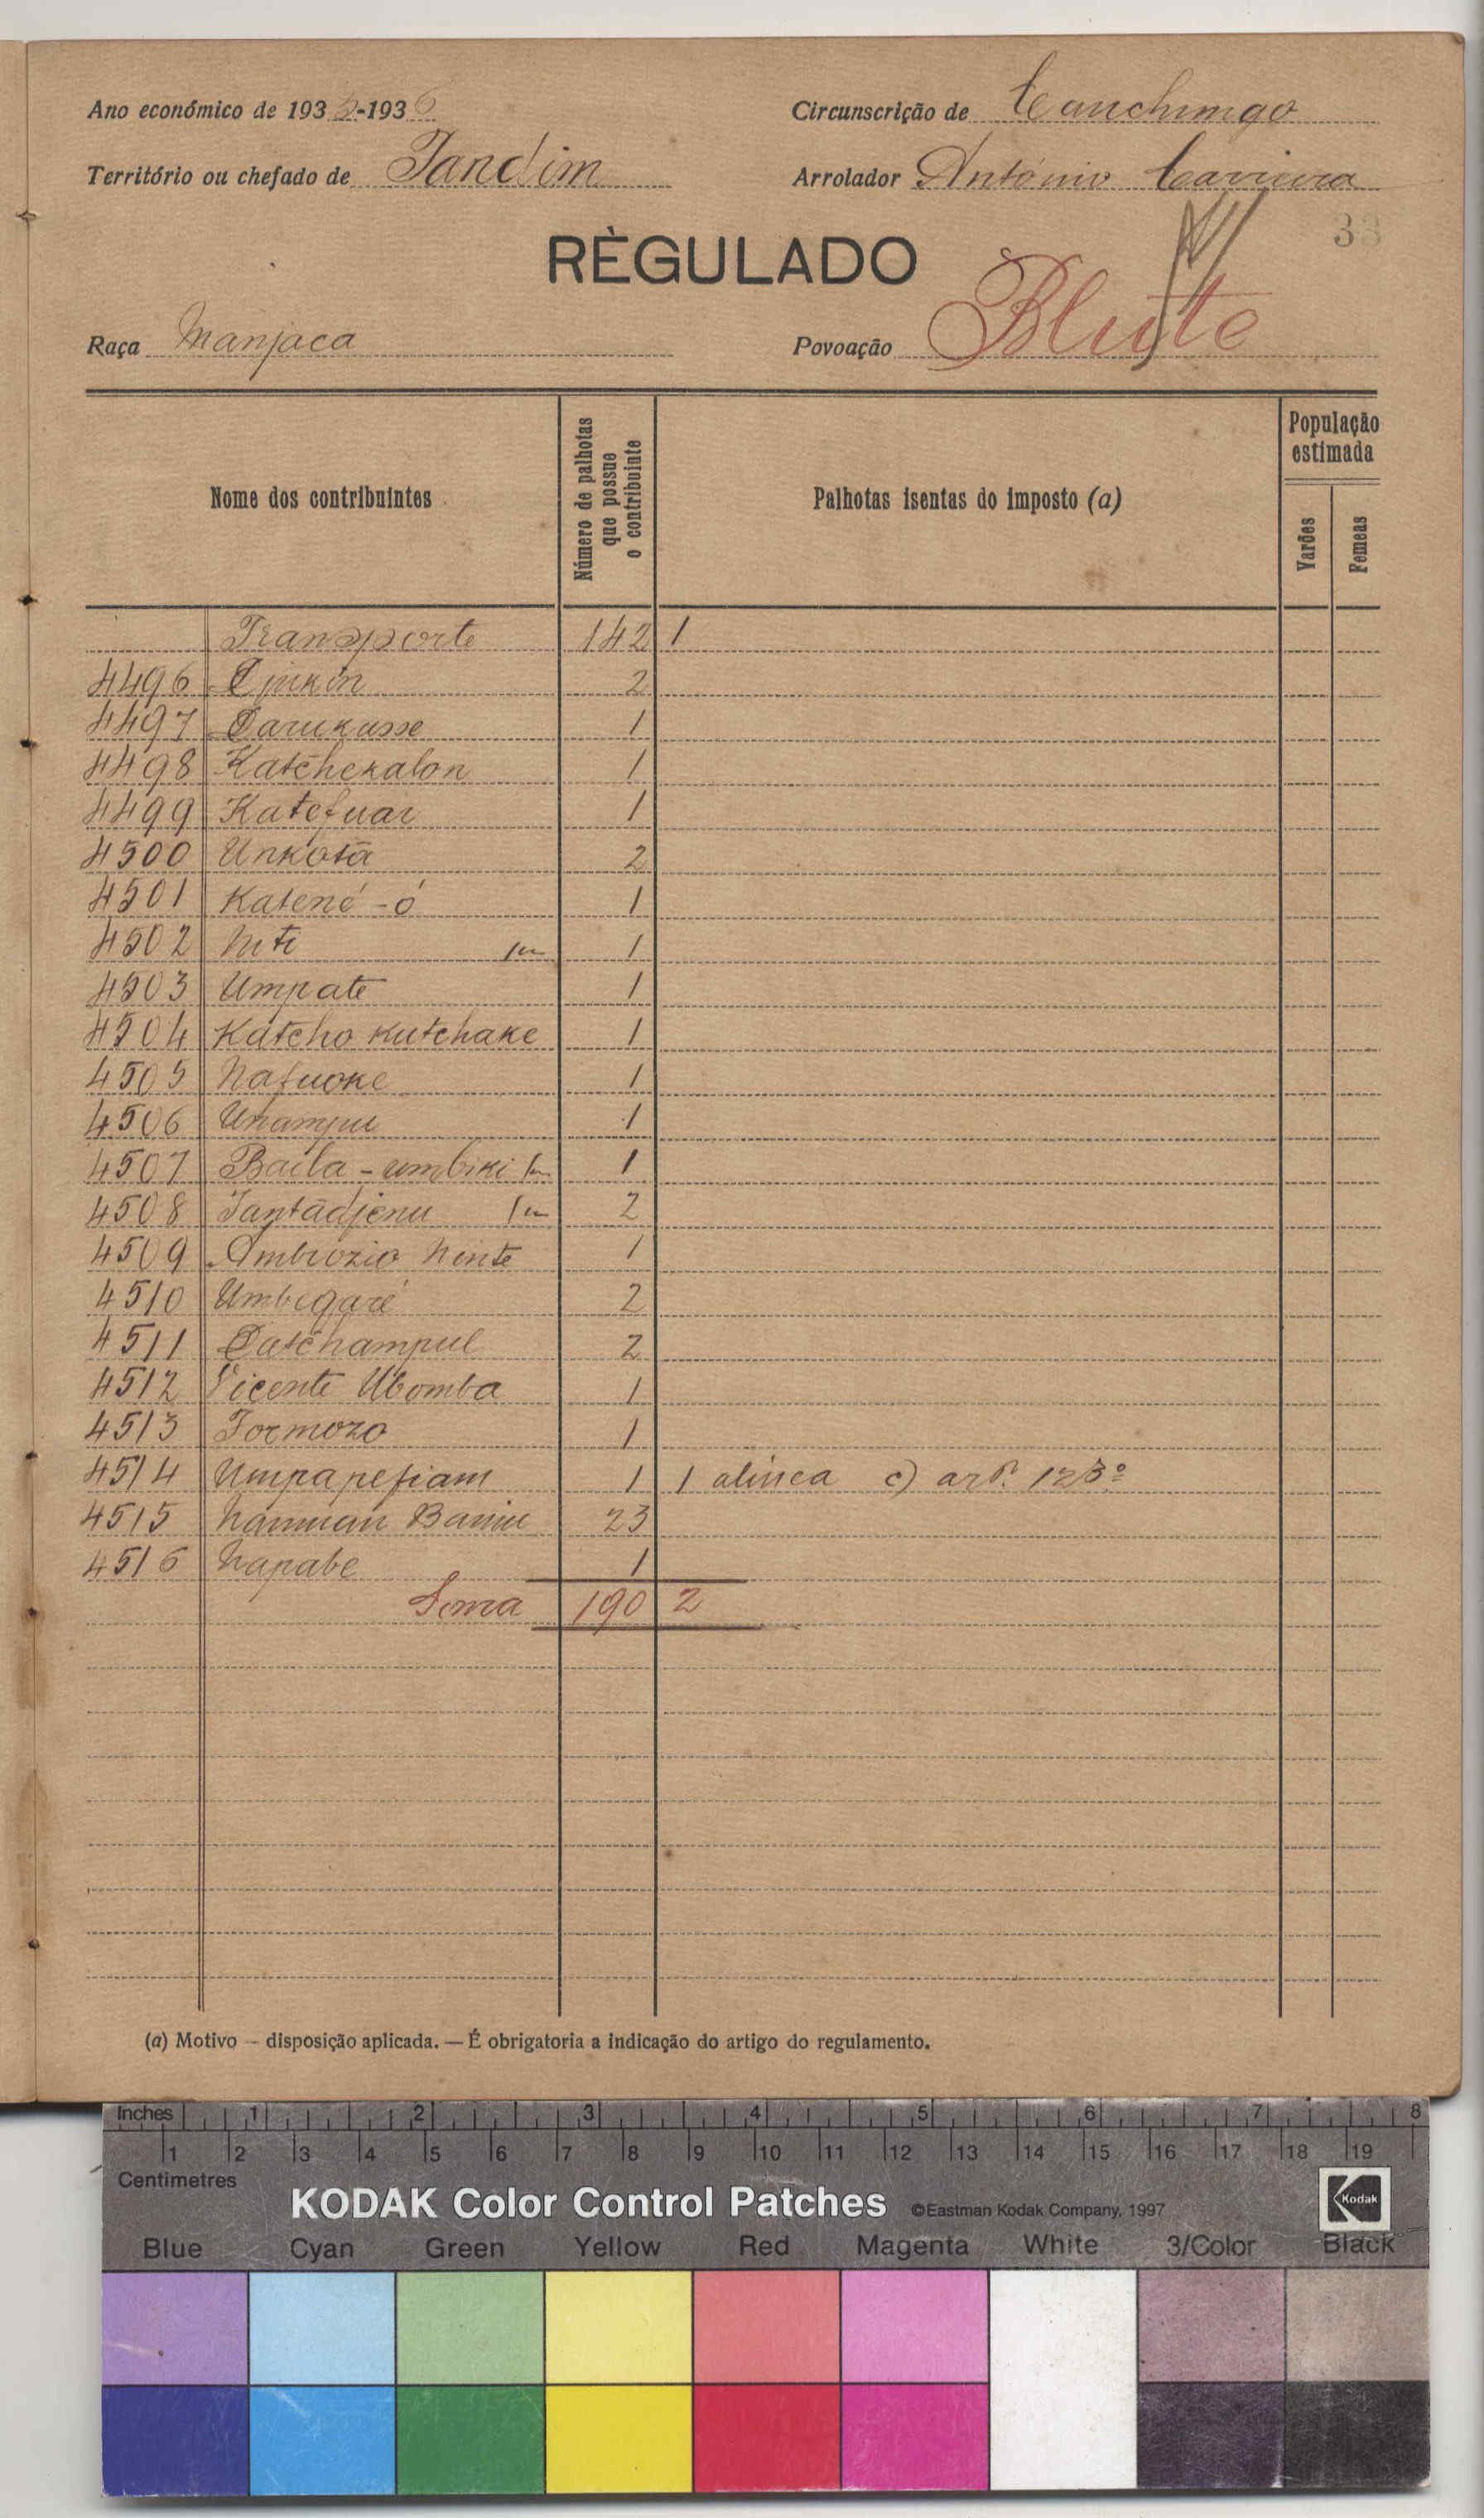 Ano económico de 1935-1936
Circunscrição de Canchungo
Território ou chefado de Jandim
Arrolador António Carreira
33
RÈGULADO
Raça Manjaca
Povoação Blufte
Nome dos contribuintes
Número de palhotas que possue o contribuinte
Palhotas isentas do imposto (a)
População estimada
Varões
Femeas
Transporte 142 1
4496 2
4497 Carukasse 1
4498 Katchekalon 1
4499 Katefuar 1
4500 Unkotã 2
4501 Katené-ó 1
4502 1
4503 Umpate 1
4504 Katcho kutchake 1
4505 Nafuoke 1
4506 1
4507 Baila-umbiki 1
4508 2
4509 Ambrozio Ninte 1
4510 Umbegaré 2
4511 Catchampul 2
4512 Vicente Ubomba 1
4513 Formozo 1
4514 Umpapefiam 1 1 alínea c) artº. 123º
4515 23
4516 Napabe 1
Soma 190 2
(a) Motivo — disposição aplicada. — É obrigatoria a indicação do artigo do regulamento.
Inches 1 2 3 4 5 6 7 8
1 2 3 4 5 6 7 8 9 10 11 12 13 14 15 16 17 18 19
Centimetres
KODAK Color Control Patches ©Eastman Kodak Company, 1997 Kodak
Blue Cyan Green Yellow Red Magenta White 3/Color Black